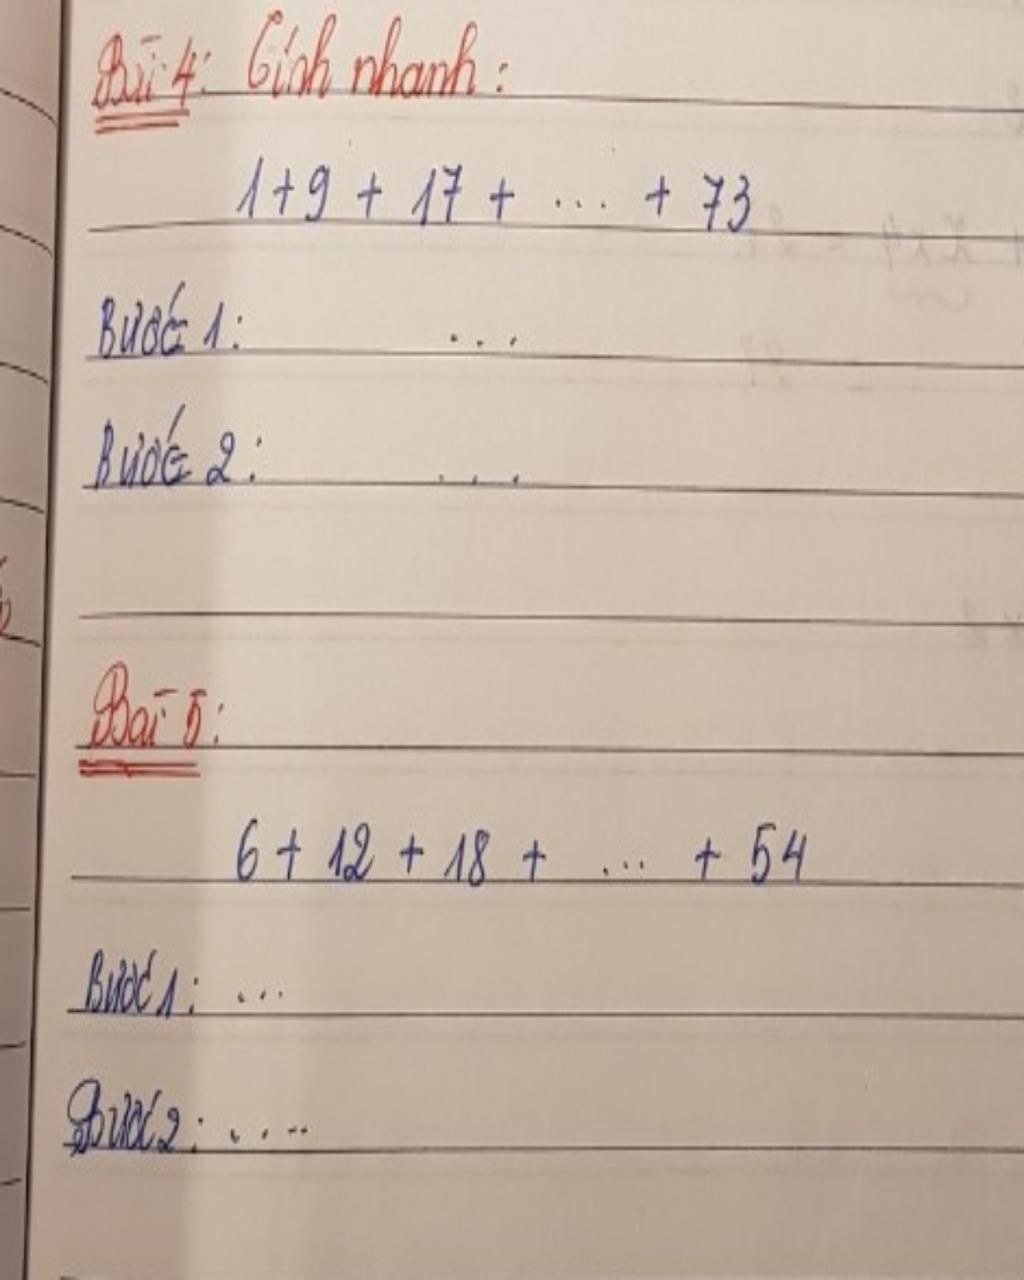 Bài 4: Tính nhanh:
1+9 + 17 + ... + 73
Bước 1: ...
Bước 2: ...
Bài 5:
6 + 12 + 18 + ... + 54
Bước 1: ...
Bước 2: ....